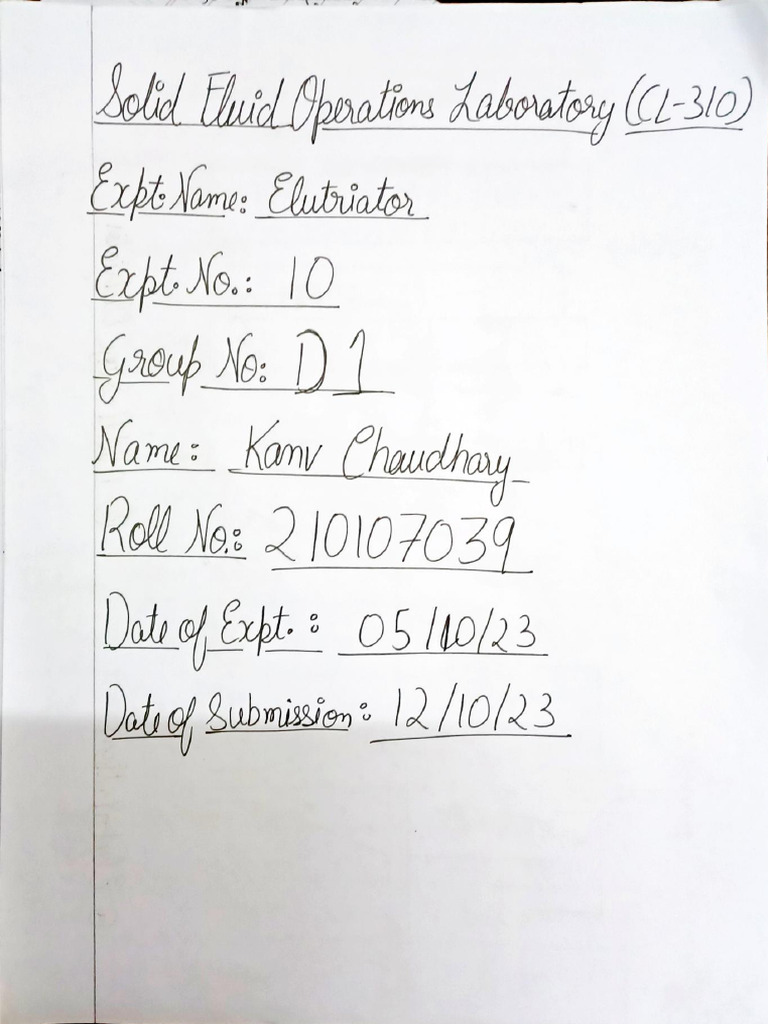 Solid Fluid Operations Laboratory (CL-310)
Expt. Name: Elutriator
Expt. No.: 10
Group No: D1
Name: Kanv Chaudhary
Roll No.: 210107039
Date of Expt. : 05/10/23
Date of Submission: 12/10/23